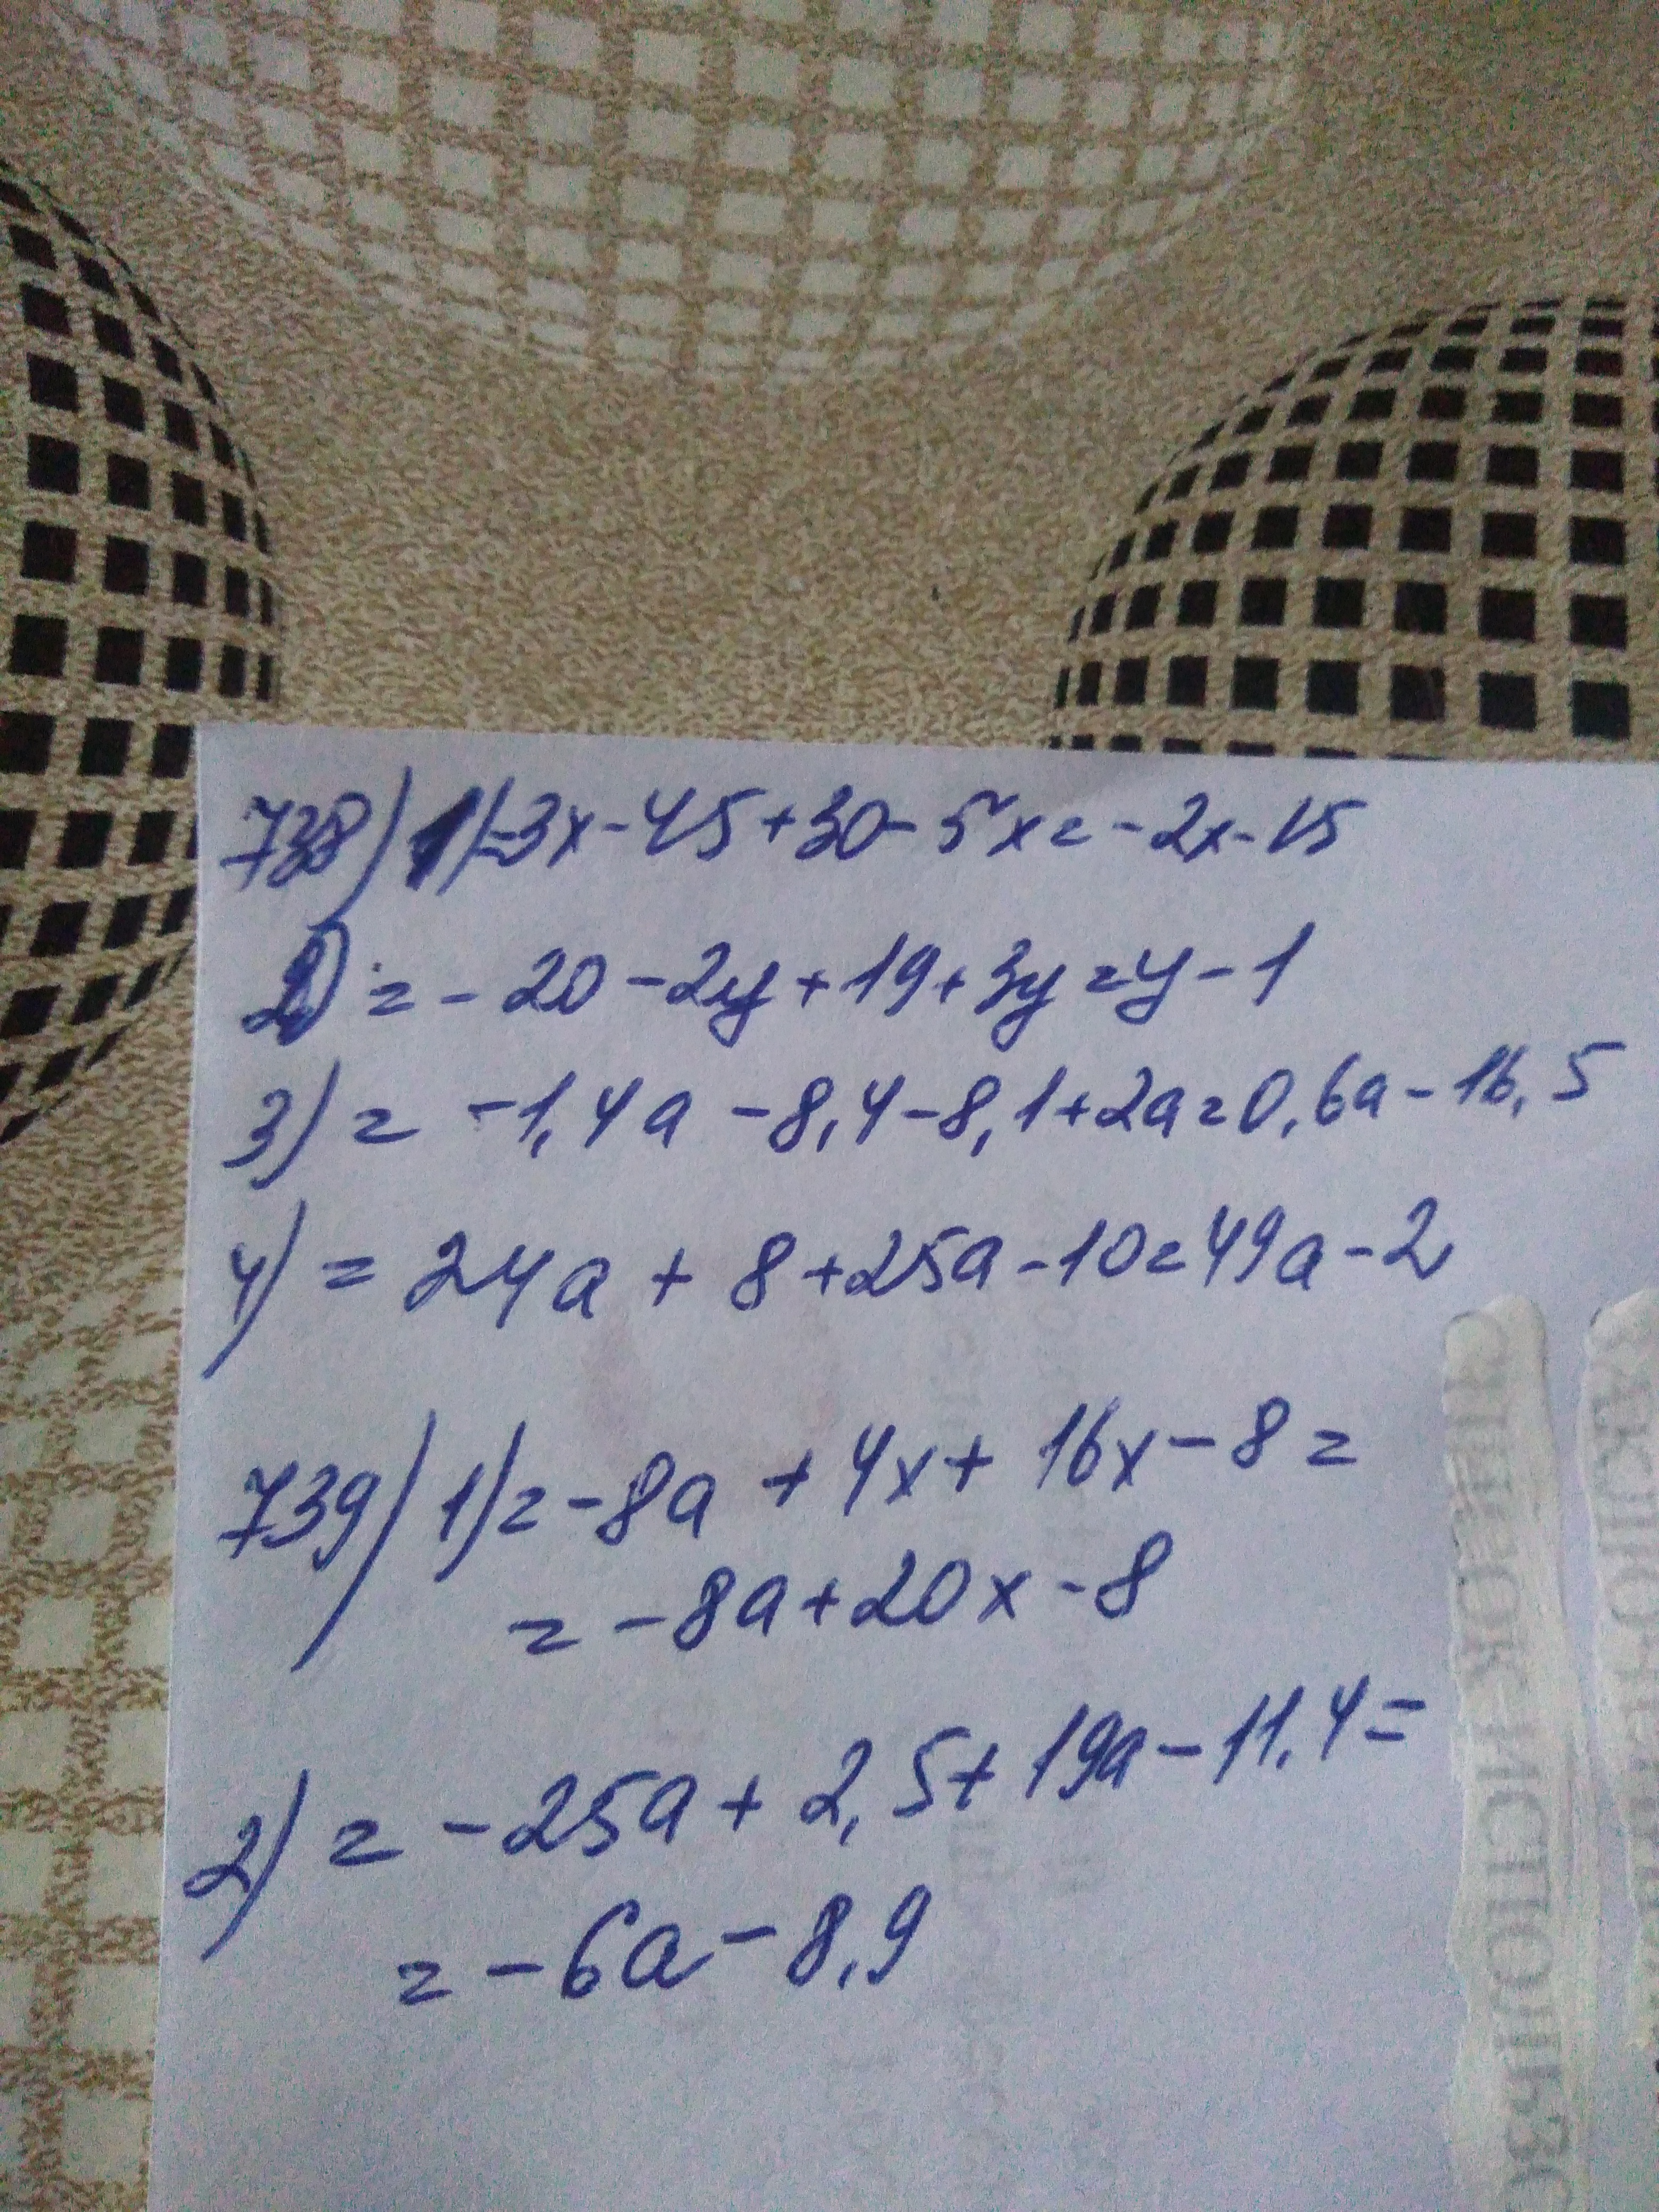 738) 1)=3x-45+30-5x=-2x-15
2) =-20-2y+19+3y=y-1
3) = -1,4a-8,4-8,1+2a=0,6a-16,5
4) = 24a+8+25a-10=49a-2
739) 1)=-8a+4x+16x-8=
=-8a+20x-8
2) = -25a+2,5+19a-11,4=
=-6a-8,9